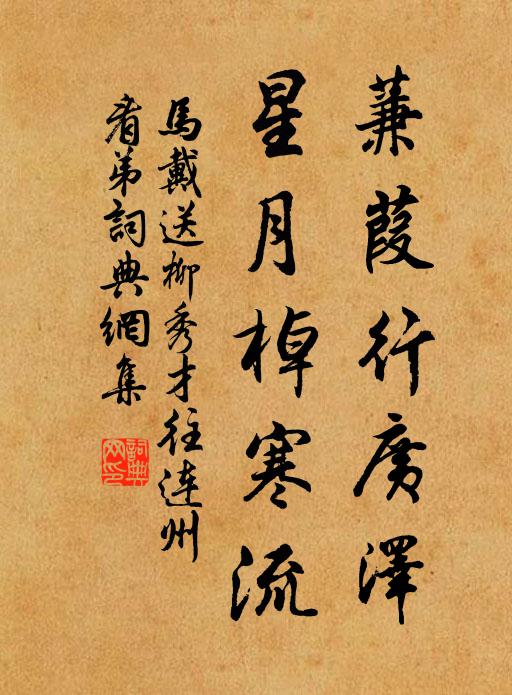 蒹葭行廣澤
星月棹寒流
馬戴送柳秀才往連州
看弟詞典網集
詞典
网印